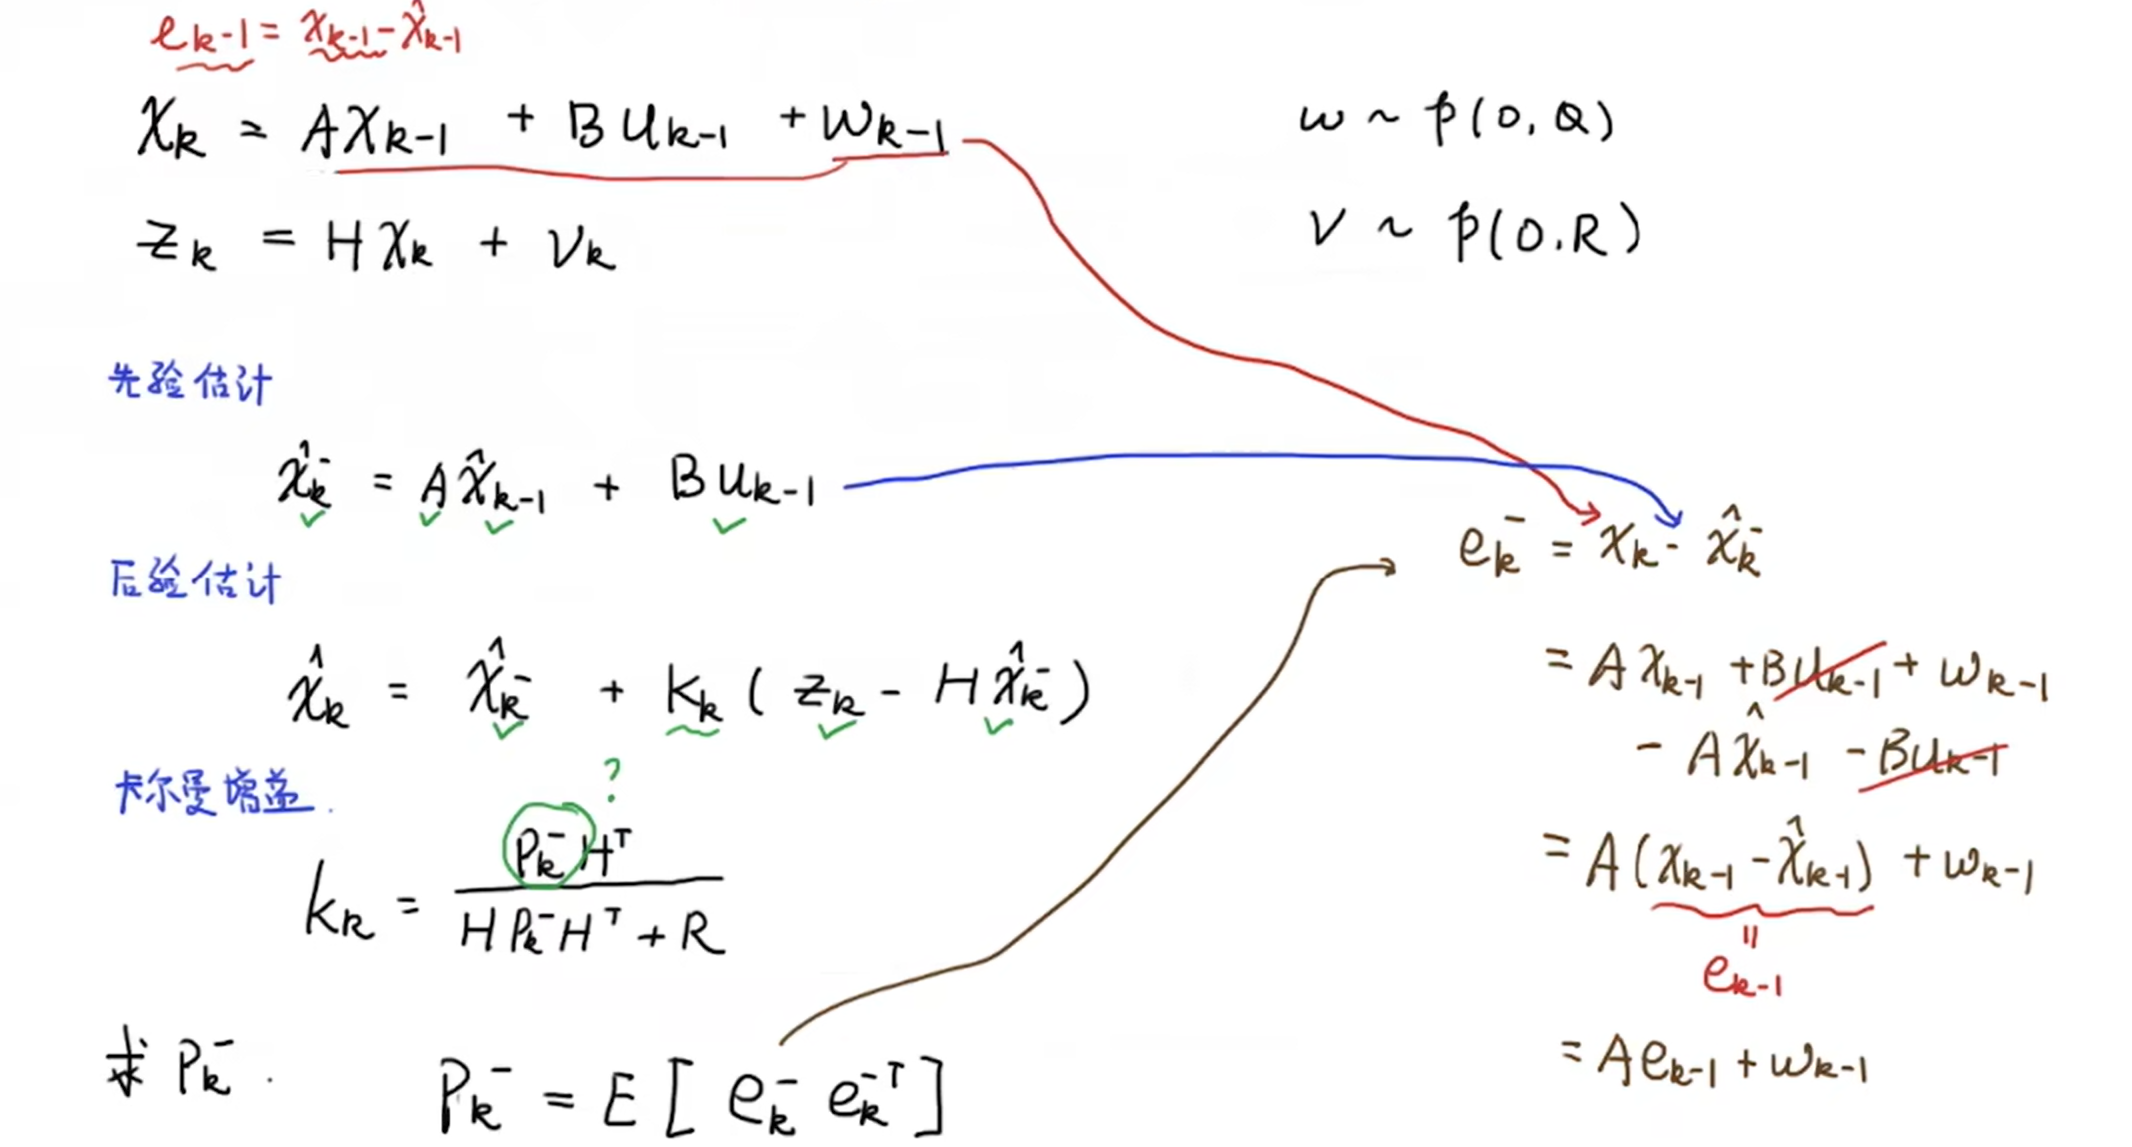 e_{k-1} = x_{k-1} - x̂_{k-1}
x_k = Ax_{k-1} + Bu_{k-1} + w_{k-1}
w ~ p(0, Q)
z_k = Hx_k + v_k
v ~ p(0, R)
先验估计
x̂_k^- = Ax̂_{k-1} + Bu_{k-1}
后验估计
x̂_k = x̂_k^- + K_k (z_k - Hx̂_k^-)
卡尔曼增益.
?
K_k = P_k^- H^T / (H P_k^- H^T + R)
求 P_k^-.
P_k^- = E[e_k^- e_k^{-T}]
e_k^- = x_k - x̂_k^-
= Ax_{k-1} + Bu_{k-1} + w_{k-1}
- Ax̂_{k-1} - Bu_{k-1}
= A(x_{k-1} - x̂_{k-1}) + w_{k-1}
=
e_{k-1}
= Ae_{k-1} + w_{k-1}